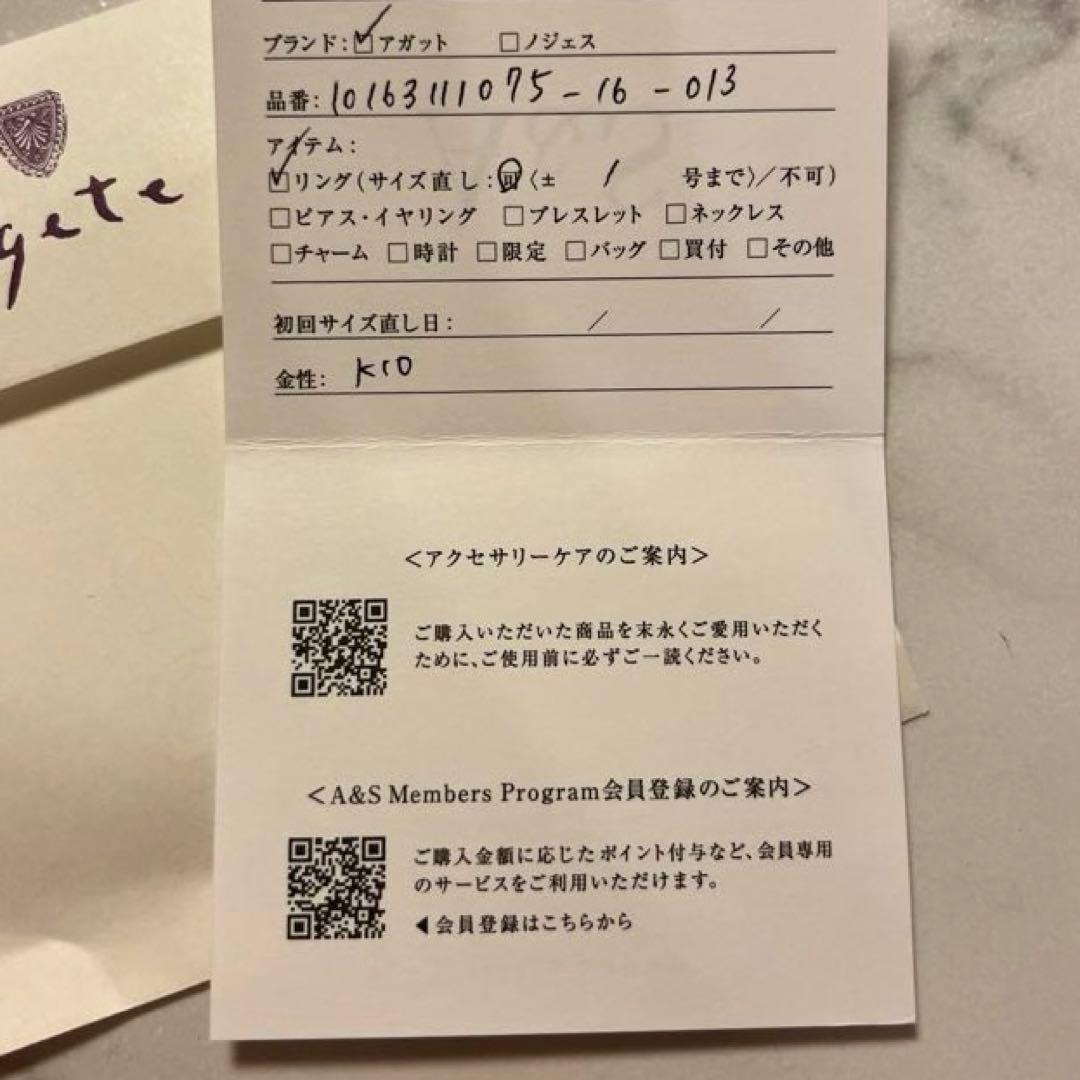 ブランド:☑アガット □ノジェス
品番: 10163111075-16-013
アイテム:
☑リング(サイズ直し:可〈± 1 号まで〉/不可)
□ピアス・イヤリング □ブレスレット □ネックレス
□チャーム □時計 □限定 □バッグ □買付 □その他
初回サイズ直し日: / /
金性: K10
<アクセサリーケアのご案内>
ご購入いただいた商品を末永くご愛用いただく
ために、ご使用前に必ずご一読ください。
<A&S Members Program会員登録のご案内>
ご購入金額に応じたポイント付与など、会員専用
のサービスをご利用いただけます。
◀会員登録はこちらから
gete